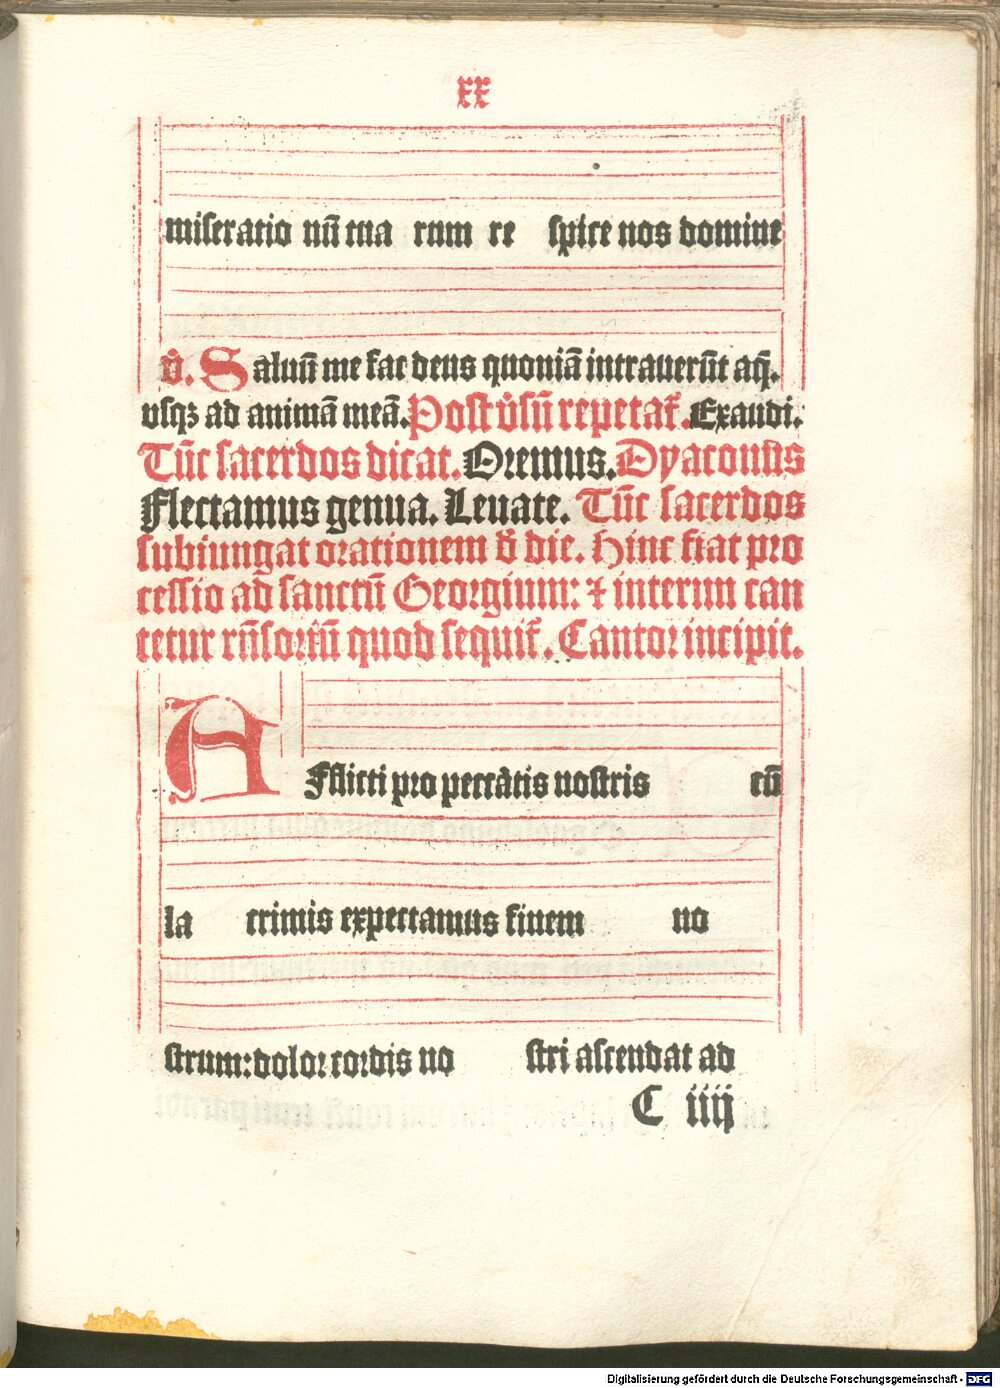 xx
miseratio nũ tua rum re spice nos domine
v̉. Saluũ me fac deus quoniã intrauerũt aq̃.
vsqz ad animã meã. Post v̉sũ repetat̃. Exaudi.
Tũc sacerdos dicat. Oremus. Dyaconus
Flectamus genua. Leuate. Tũc sacerdos
subiungat orationem d̉ die. Hinc fiat pro
cessio ad sanctũ Georgium: ⁊ interim can
tetur rñsoriũ quod sequit̃. Cantor incipit.
AFflicti pro peccatis nostris cũ
la crimis expectamus finem no
strum: dolor cordis no stri ascendat ad
C iiij
Digitalisierung gefördert durch die Deutsche Forschungsgemeinschaft - DFG